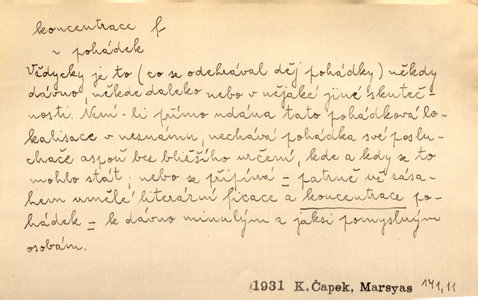 koncentrace f
~ pohádek
Vždycky je to (co se odehrával děj pohádky) někdy
dávno, někde daleko nebo v nějaké jiné skuteč-
nosti. Není-li přímo udána tato pohádková lo-
kalisace v neznámu, nechává pohádka své poslu-
chače aspoň bez bližšího určení, kde a kdy se to
mohlo stát; nebo se připíná = patrně už zása-
hem umělé literární fixace a koncentrace po-
hádek = k dávno minulým a jaksi pomyslným
osobám.
1931 K. Čapek, Marsyas 141,11